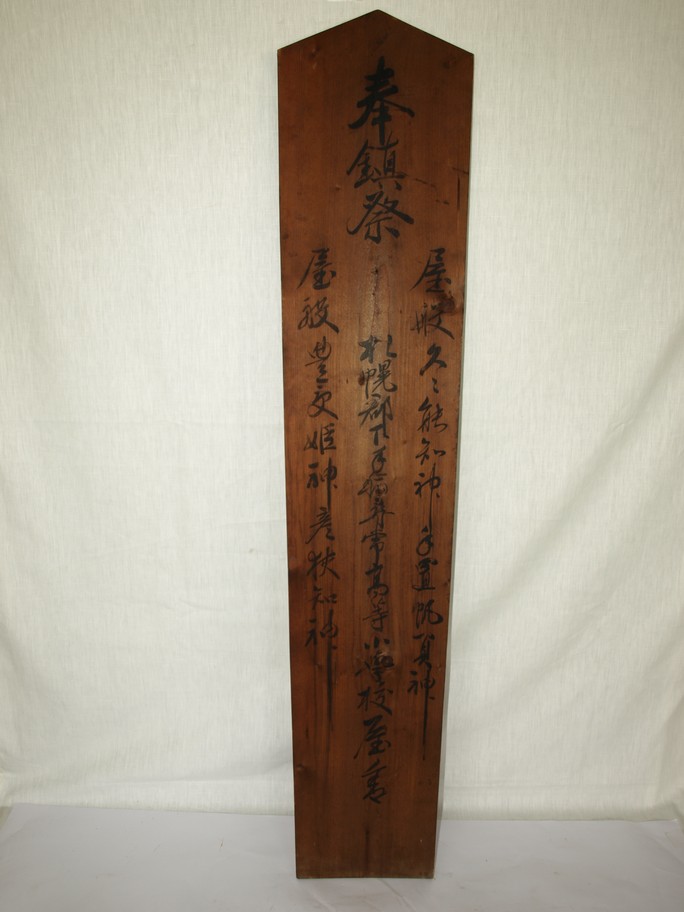 奉鎮祭
屋船久々能知神 手置帆負神
札幌郡下手稲尋常高等小学校屋舎
屋船豊受姫神 彦狭知神